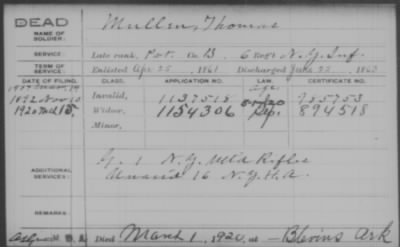 DEAD
NAME OF SOLDIER: Mullen, Thomas
SERVICE: Late rank, Pvt. Co. B, 6 Reg't N.Y. Inf.
TERM OF SERVICE: Enlisted Apr 25, 1861 Discharged June 25, 1863
DATE OF FILING. CLASS. APPLICATION NO. LAW. CERTIFICATE NO.
1892 Nov 10 Invalid, 1137518 985753
1920 15 Widow, 1154306 894518
Minor,
ADDITIONAL SERVICES: G. 1 N.Y. Mt'd Rifles
Unassd 16 N.Y.H.A.
REMARKS:
Died March 1, 1920, at Blevins Ark